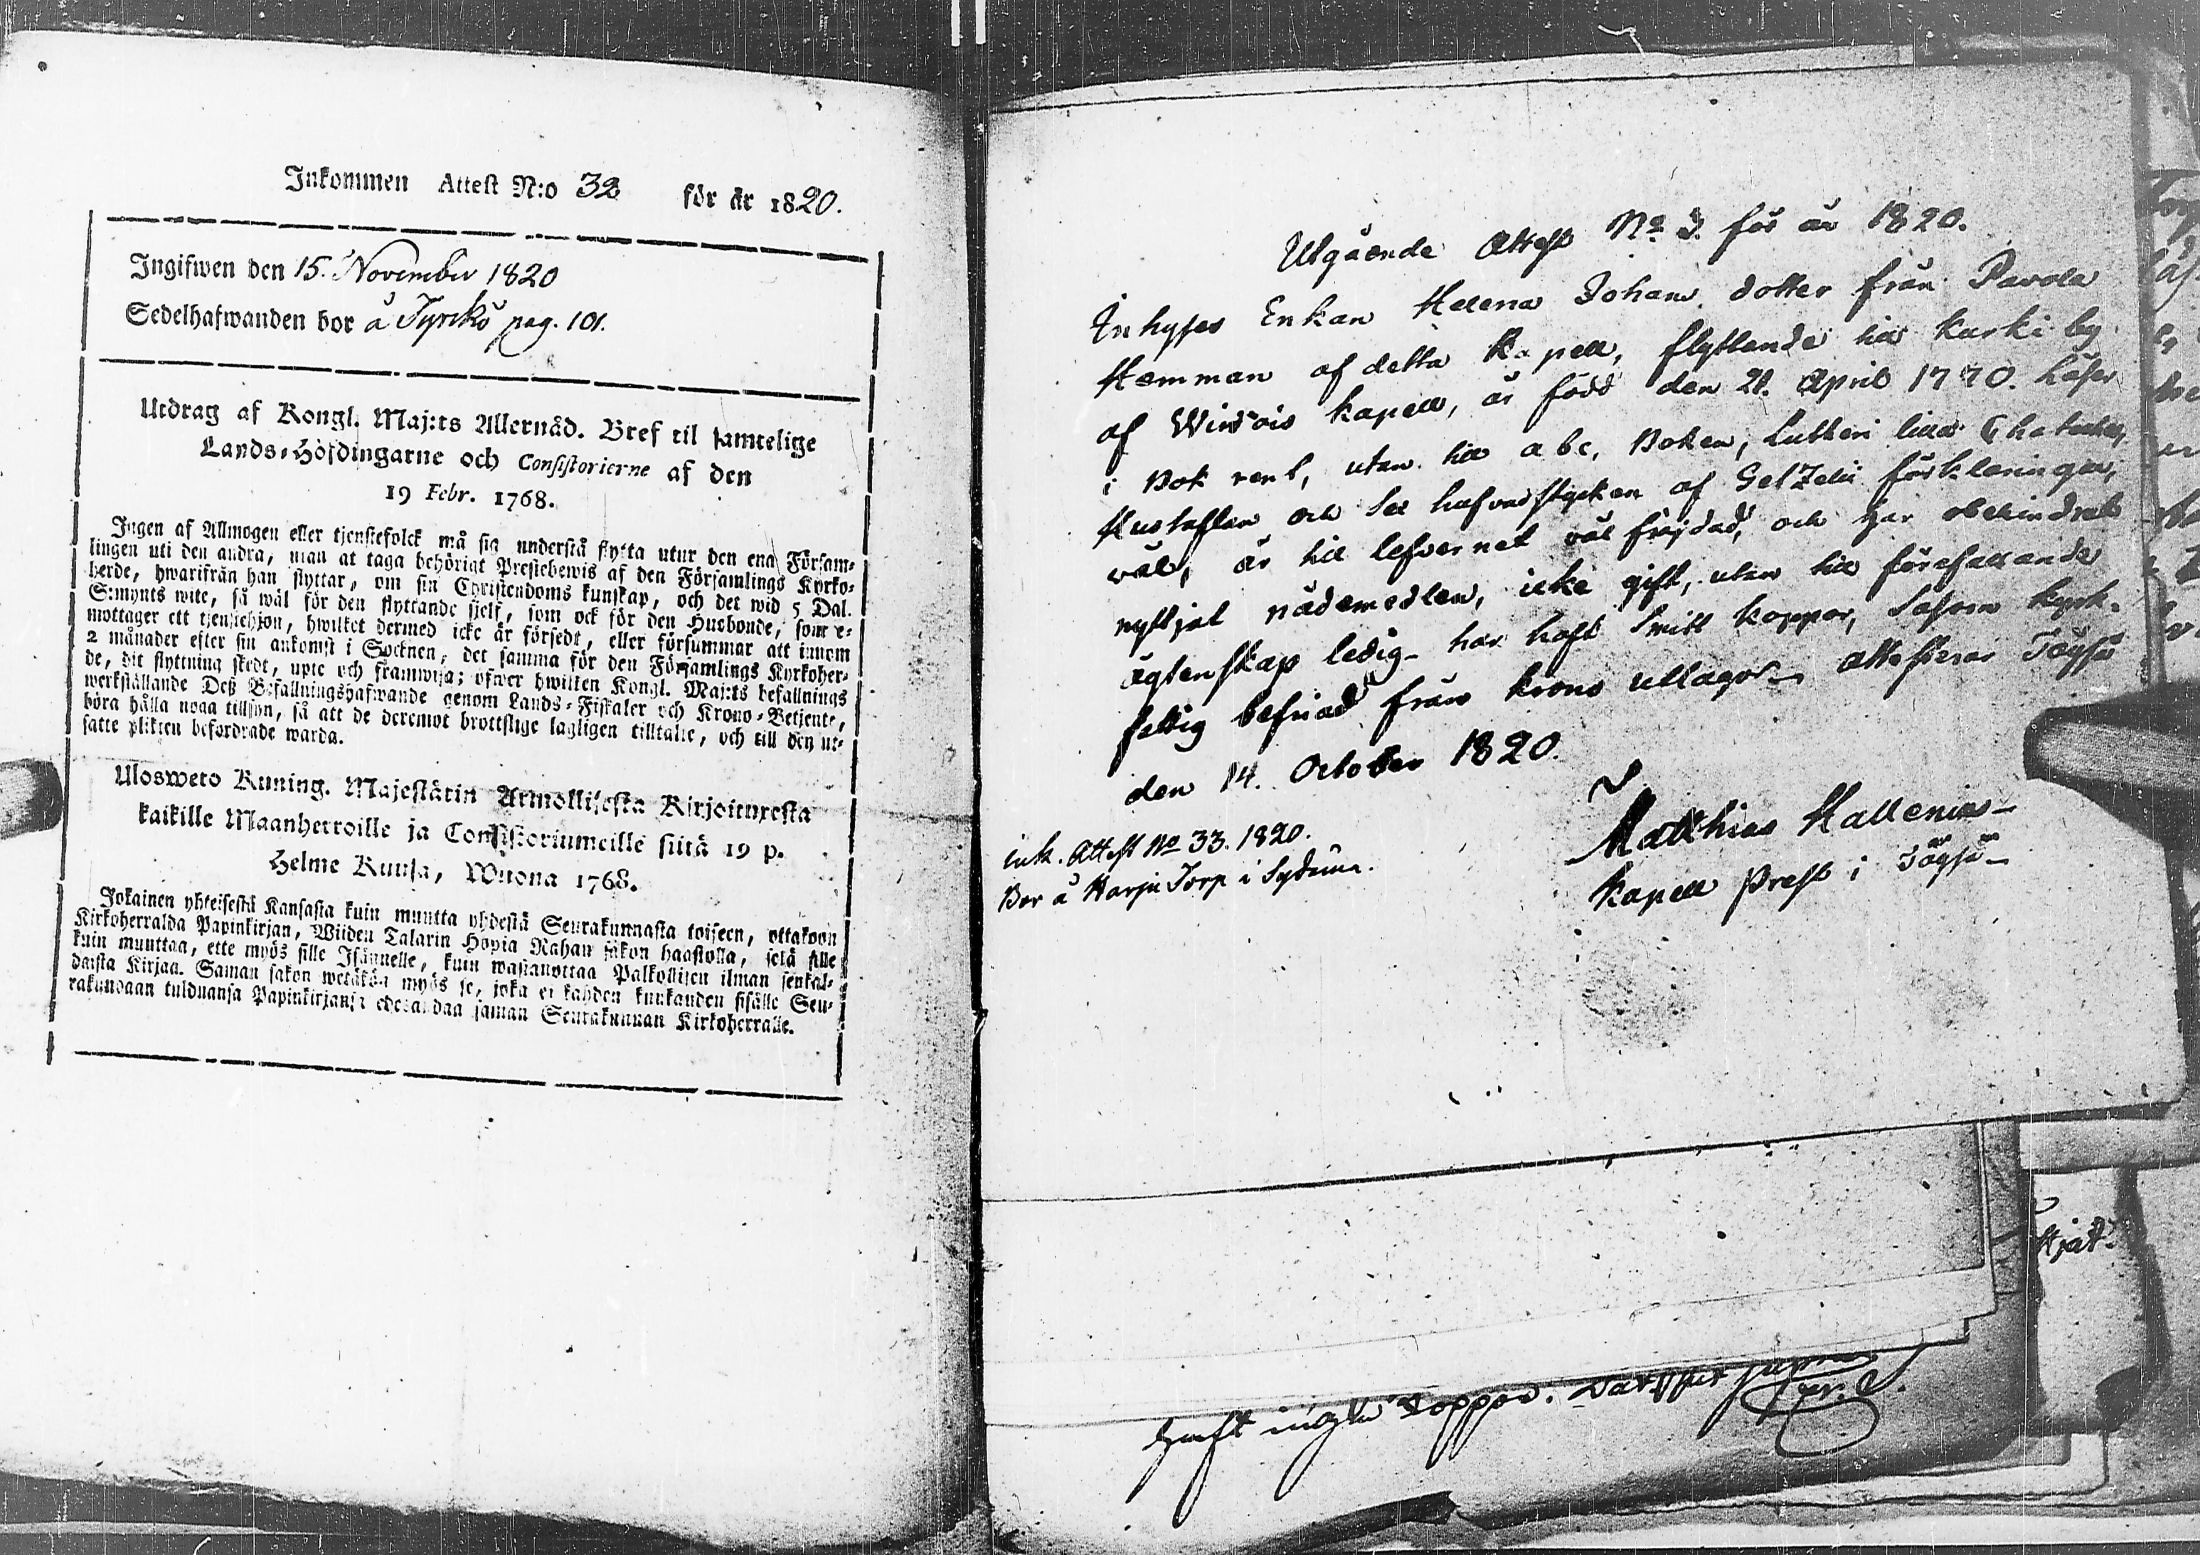 Inkommen Attest N:o 32 för år 1820.
Ingifwen den 15. November 1820
Sedelhafwanden bor å Tyrckö pag. 101.
Utdrag af Kongl. Maj:ts Allernåd. Bref til samtelige
Lands-Höfdingarne och Consistorierne af den
19 Febr. 1768.
Ingen af Allmogen eller tjenstefolck må sig understå flytta utur den ena Försam-
lingen uti den andra, utan at taga behörigt Prestebewis af den Församlings Kyrko-
herde, hwarifrån han flyttar, om sin Christendoms kunskap, och det wid 5 Dal.
S:mynts wite, så wäl för den flyttande sielf, som ock för den Husbonde, som e-
mottager ett tjenstehjon, hwilket dermed icke är försedt, eller försummar att innom
2 månader efter sin ankomst i Socknen, det samma för den Församlings Kyrkoher-
de, dit flyttning skedt, upte och framwisa; öfwer hwilken Kongl. Maj:ts befallnings
werkställande Deß Befallningshafwande genom Lands-Fiskaler och Krono-Betjente,
böra hålla noga tillsyn, så att de deremot brottslige lagligen tilltalte, och till den ut-
satte plikten befordrade warda.
Ulosweto Kuning. Majestätin Armollisesta Kirjoituxesta
kaikille Maanherroille ja Consistoriumeille siitä 19 p.
Helme Kuusa, Wuona 1768.
Jokainen yhteisestä Kansasta kuin muutta yhdestä Seurakunnasta toiseen, ottakoon
Kirkoherralda Papinkirjan, Wiiden Talarin Hopia Rahan sakon haastolla, sekä sille
kuin muuttaa, ette myös sille Isännelle, kuin wastanottaa Palkollisen ilman senkal-
daista Kirjaa. Saman sakon wetäköön myös se, joka ei kahden kuukauden sisälle Seu-
rakundaan tulduansa Papinkirjansa edesandaa saman Seurakunnan Kirkoherralle.
Utgående Attest No 3. för år 1820.
Inhyses Enkan Helena Johans dotter från Pavola
Hemman af detta Kapell, flyttande till Kurki by
af Windois Kapell, är född den 21. April 1770. Läser
i Bok rent, utan till abc, Boken, Lutheri lilla
Hustaflan och hufvudstycken af förklaringen,
väl, är till lefvernet väl frejdad, och har obehindrat
nyttjat nådemedlen, icke gift, utan till förefallande
ägtenskap ledig har haft Smitt koppor, Såsom kyrk-
fattig befriad från krono utlagor attesterar Töysä
den 14. October 1820.
Matthias Hallenius
Kapell Prest i Töysä
ink. Attest No 33. 1820.
Bor å Harju Torp i Sydäma.
Haft inga koppor.